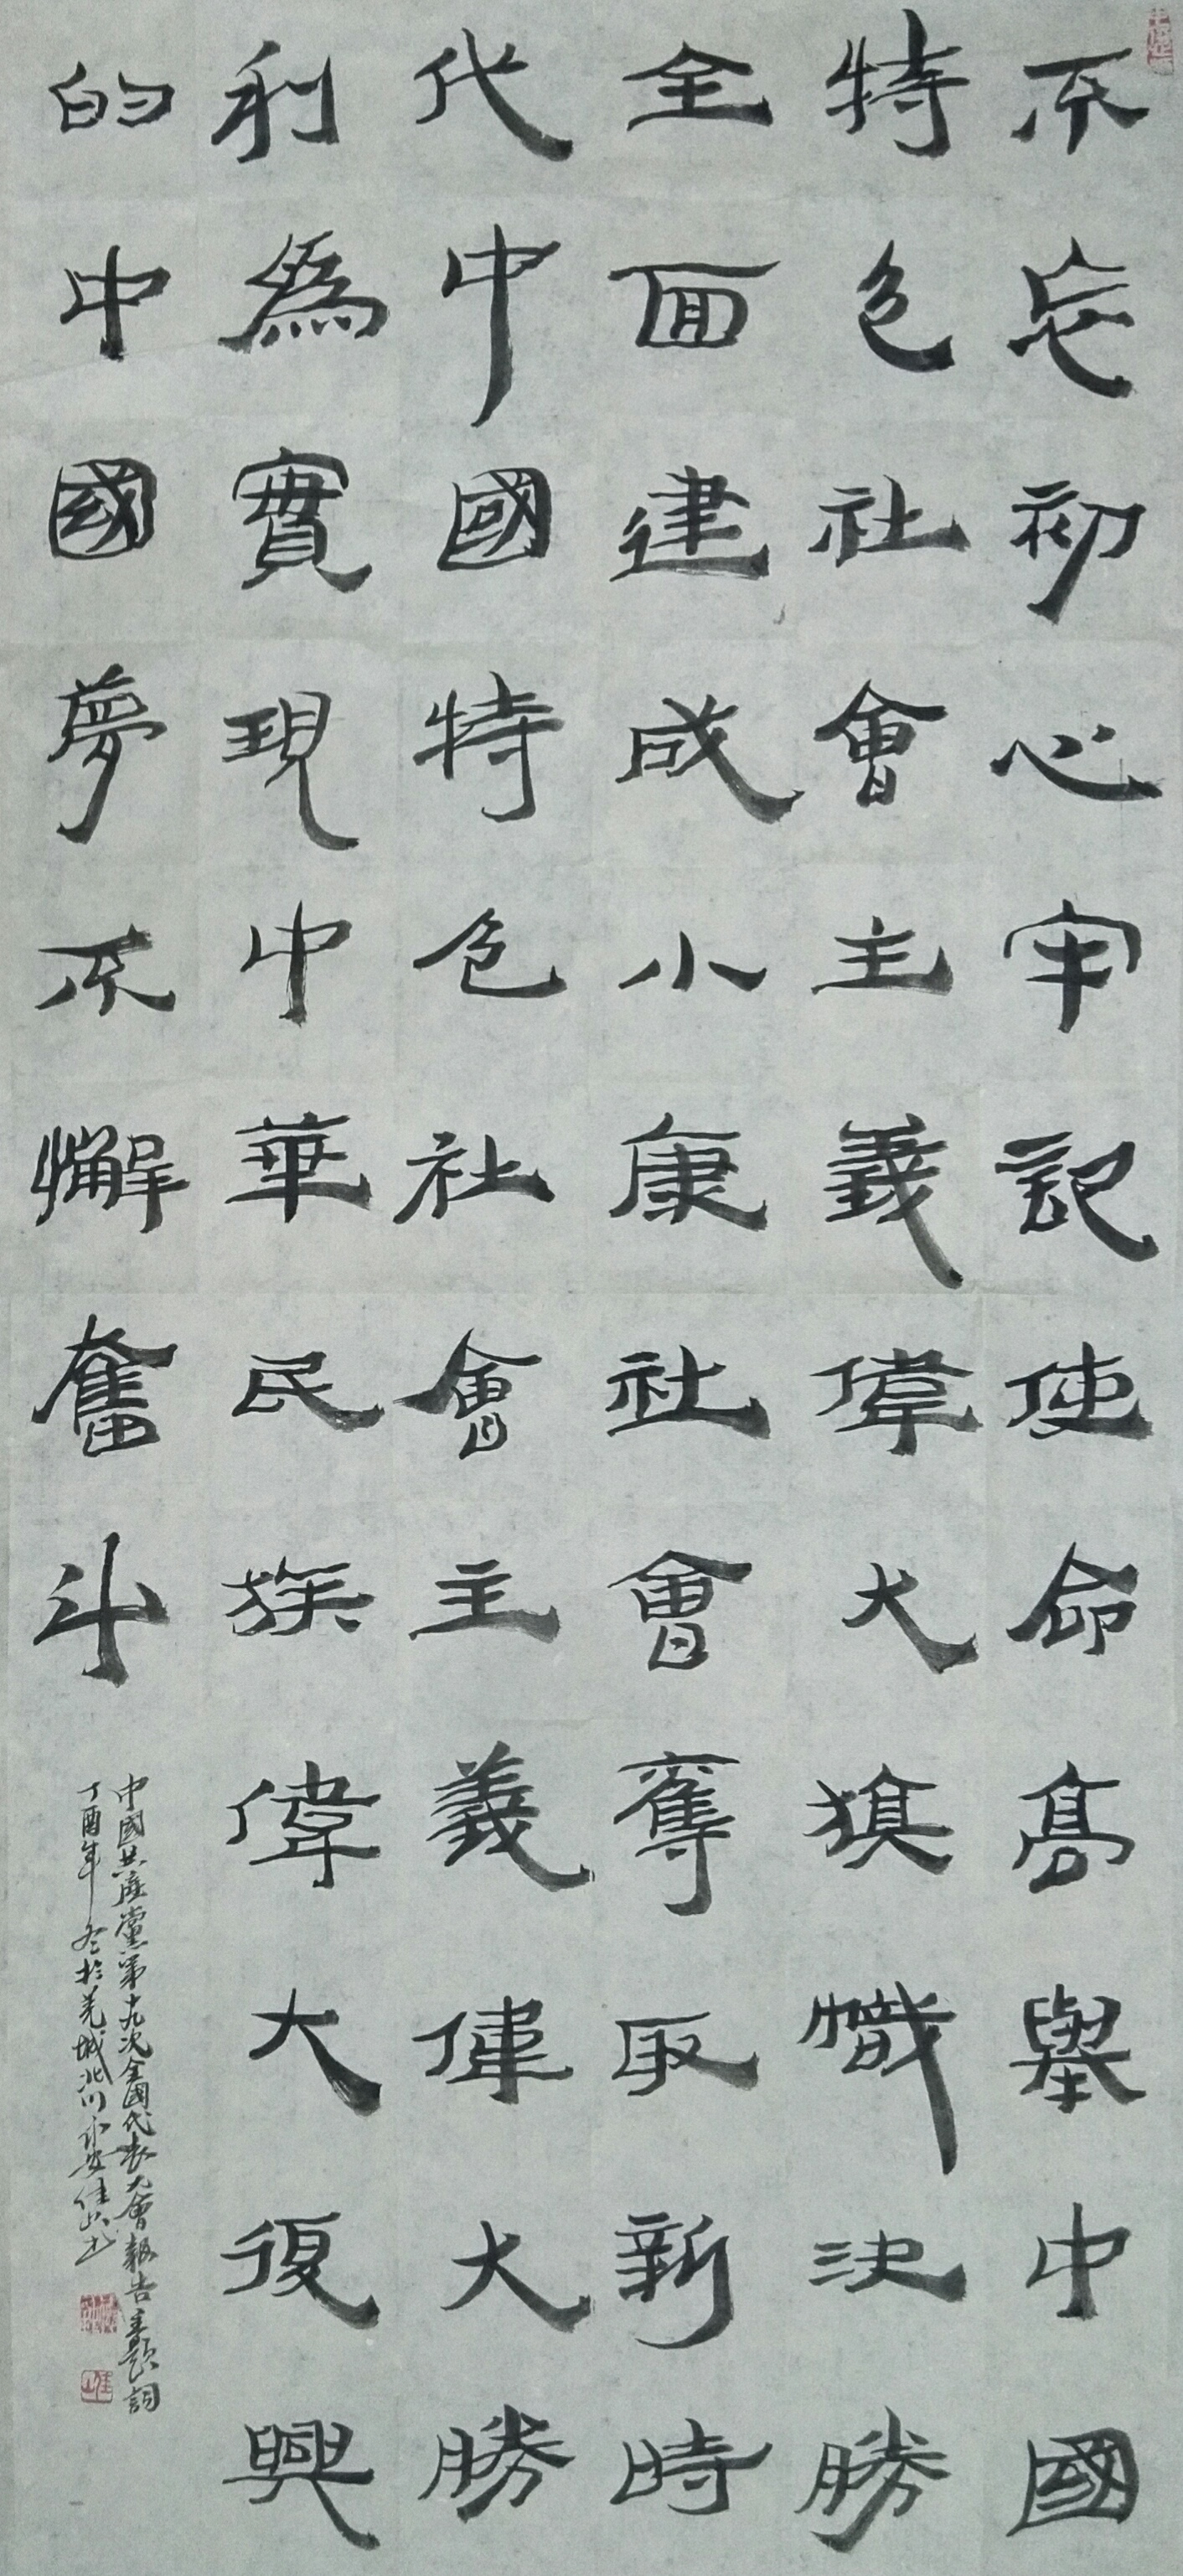 不忘初心牢記使命高舉中國
特色社會主義偉大旗幟決勝
全面建成小康社會奪取新時
代中國特色社會主義偉大勝
利為實現中華民族偉大復興
的中國夢不懈奮斗
中國共產黨第十九次全國代表大會報告主題詞
丁酉年冬於羌城北川永安佳山書